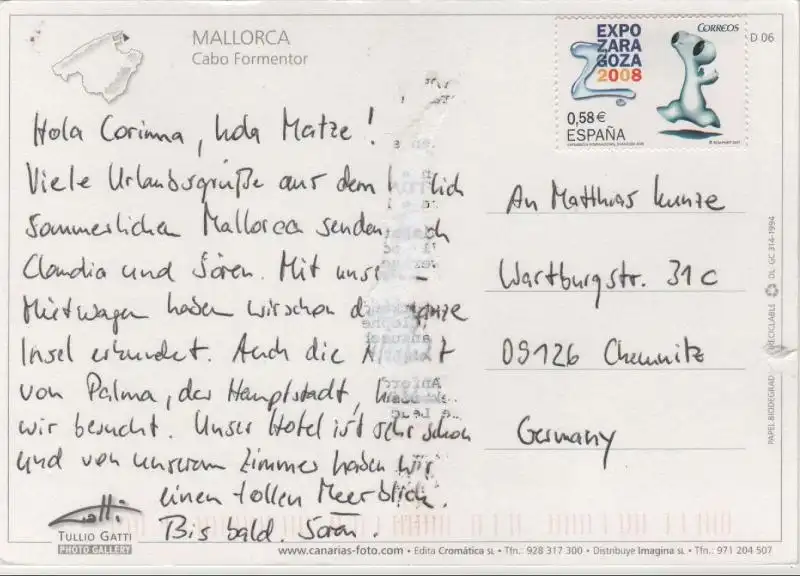 MALLORCA
Cabo Formentor
Hola Corinna, hola Matze!
Viele Urlaubsgrüße aus dem
sommerlichen Mallorca senden
Claudia und Sören. Mit
Mietwagen haben wir schon
Insel erkundet. Auch die
von Palma, der Hauptstadt,
wir besucht. Unser Hotel ist sehr schön
und von unserem Zimmer haben wir
einen tollen Meerblick.
Bis bald. Sören.
EXPO
ZARA
GOZA
2008
CORREOS
0,58€
ESPAÑA
D 06
An Matthias Kunze
Wartburgstr. 31c
09126 Chemnitz
Germany
DL· GC 314-1994
TULLIO GATTI
PHOTO GALLERY
www.canarias-foto.com • Edita Cromática SL • Tfn.: 928 317 300 • Distribuye Imagina SL • Tfn.: 971 204 507